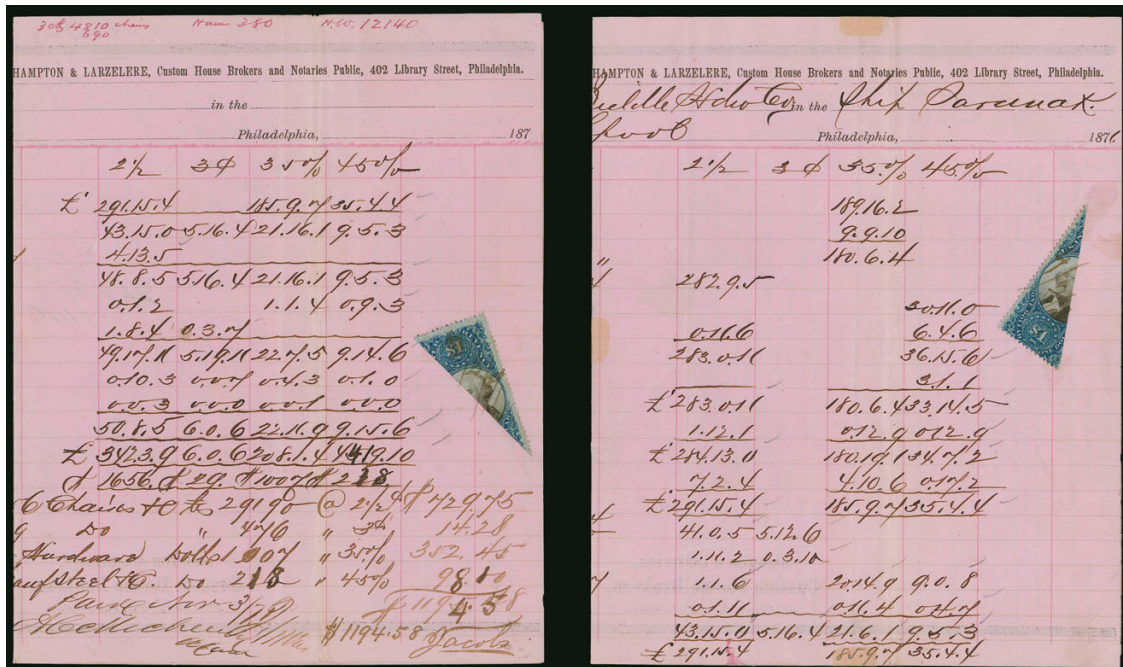 4810 chains Ham 350 N.W. 12140
690
HAMPTON & LARZELERE, Custom House Brokers and Notaries Public, 402 Library Street, Philadelphia.
in the
Philadelphia, 187
2 1/2 3¢ 35% 45%
£ 291.15.4 185.9.7 35.4.4
43.15.0 5.16.4 21.16.1 9.5.3
4.13.5
48.8.5 5.16.4 21.16.1 9.5.3
0.1.2 1.1.4 0.9.3
1.8.4 0.3.7
49.17.11 5.19.11 22.17.5 9.14.6
0.10.3 0.0.7 0.4.3 0.1.0
0.0.3 0.0.0 0.0.1 0.0.0
50.8.5 6.0.6 22.11.9 9.15.6
£ 342.3.9 6.0.6 208.1.4 44.19.10
$ 1656. $ 29. $ 1007 $ 218
Chains &C 29190 @ 2 1/2¢ $ 729.75
Do " 476 " 3¢ 14.28
Hardware Dolls 1007 " 35% 352.45
Steel &C. Do 218 " 45% 98.10
Nov 3/76
$ 1194.58 Jacobs
HAMPTON & LARZELERE, Custom House Brokers and Notaries Public, 402 Library Street, Philadelphia.
Hdw Co. in the Ship Saranak.
Philadelphia, 1876
2 1/2 3¢ 35% 45%
189.16.2
9.9.10
180.6.4
282.9.5
30.11.0
0.11.6 6.4.6
283.0.11 36.15.6
3.1.1
£ 283.0.11 180.6.4 33.14.5
1.12.1 0.12.9 0.12.9
£ 284.13.0 180.19.1 34.7.2
7.2.4 4.10.6 0.17.2
£ 291.15.4 185.9.7 35.4.4
41.0.5 5.12.6
1.11.2 0.3.10
1.1.6 20.14.9 9.0.8
0.1.11 0.11.4 0.4.7
43.15.0 5.16.4 21.6.1 9.5.3
£ 291.15.4 185.9.7 35.4.4